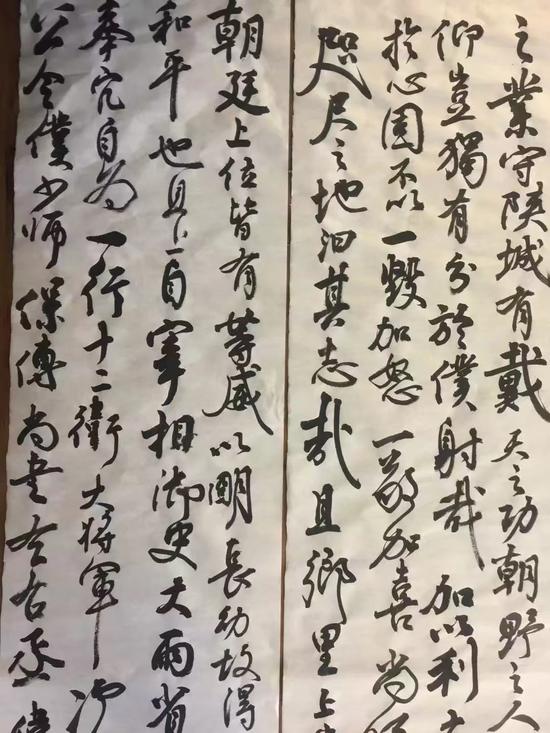 之業守陝城有戴天之功朝野之人
仰豈獨有分於僕射哉加以利
於心固不以一毀加怒一敬加喜尚
咫尺之地汩其志哉且鄉里上
朝廷上位皆有等威以明長幼故得
和平也且上自宰相御史大兩省
奉官自為一行十二衛大將軍次
公令僕少師保傅尚書左右丞